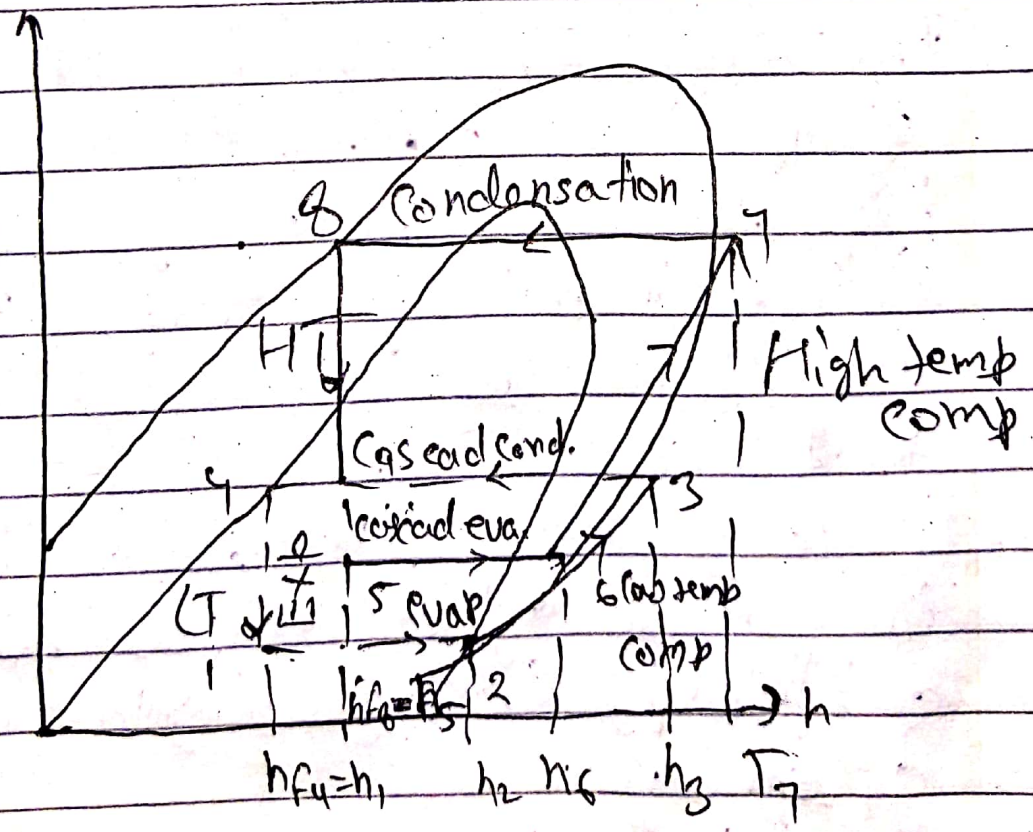 8 Condensation 7
HT
High temp
comp
Cascad Cond.
4
3
cascad eva.
5 evap
6
LT
temp
comp
1
2
h
hf4=h1
h2
h6
h3
T7